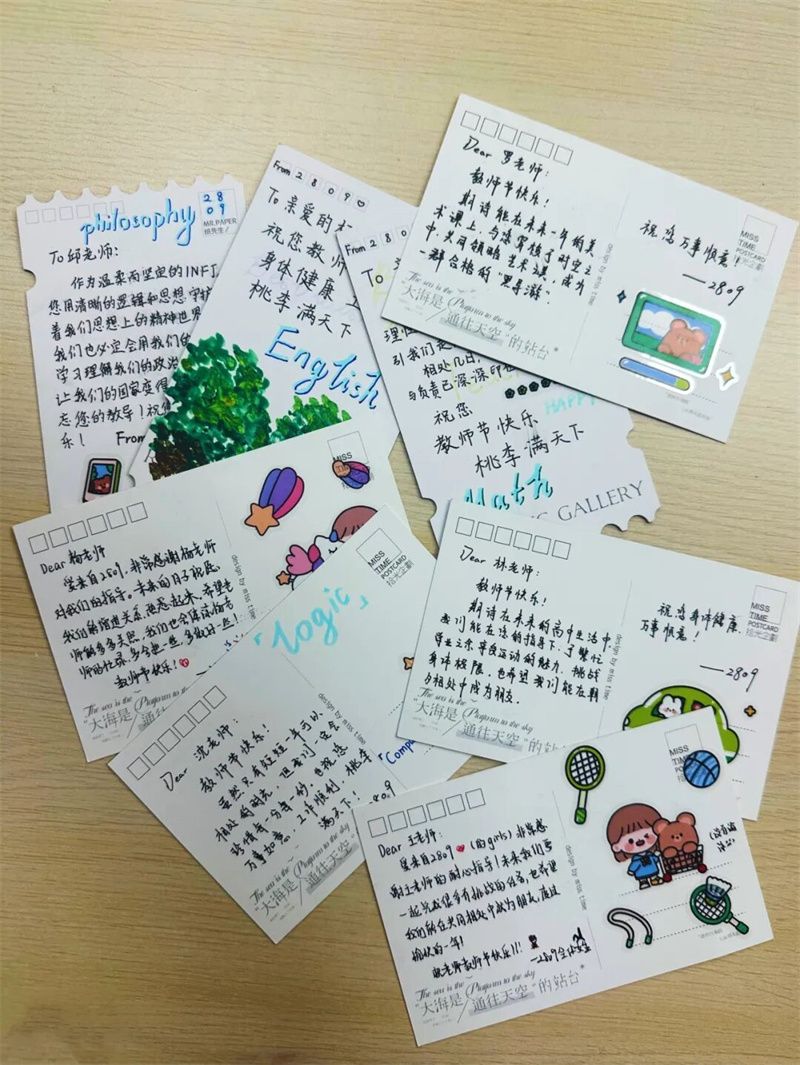 philosophy
2809
MR.PAPER
纸先生/
To 邱老师:
作为温柔而坚定的INFJ
您用清晰的逻辑和思想守护
着我们思想上的精神世界
我们也必定会用我们的
学习理解我们的政治
让我们的国家变得
忘您的教导!祝
乐!
From
From 2809
To 亲爱的
祝您教师
身体健康
桃李满天下
English
From 280
To
理性
引我们走
相处几日,
与负责已深深印
祝您
教师节快乐
桃李满天下
HAPPY
Math
GALLERY
Dear 罗老师:
教师节快乐!
期待能在未来一年的美
术课上,与您穿梭于时空之
中,共同领略艺术之美,成为
一群合格的“黑导游”。
祝您万事顺意!
——2809
MISS
TIME
POSTCARD
拾光企劃
The sea is the Platform to the sky
“大海是/通往天空”的站台”
Dear 杨老师
爱来自2809,非常感谢杨老师
对我们的指导。未来的日子祝愿
我们
师的
教师节快乐!
design by miss time
MISS
The sea is the Platform to the sky
“大海是/通往天空
「Logic」
MISS
TIME
POSTCARD
拾光企劃
Dear 沈老师:
教师节快乐!
虽然只有短短一年可以
相处的时光,但我们一定会
珍惜每一分每一秒,也祝您
万事如意,工作顺利,桃李
满天下!
——2809
「Comp
design by miss time
The sea is the Platform to the sky
“大海是/通往天空”的站台”
Dear 林老师:
教师节快乐!
期待在未来的高中生活中,
我们能在您的指导下,了解忙
毕业之余,享受运动的魅力,挑战
身体极限,也希望我们能在期
与相处中成为朋友。
祝您身体健康,
万事顺意!
——2809
design by miss time
MISS
TIME
POSTCARD
拾光企劃
The sea is the Platform to the sky
“大海是/通往天空”的站台”
Dear 王老师:
爱来自2809(的girls)非常感
谢王老师的耐心指导!未来我们要
一起完成很多有挑战的任务,也希望
我们能在共同相处中成为朋友,度过
愉快的一年!
祝老师教师节快乐!!!
—2809全体女生
design by miss time
MISS
TIME
The sea is the Platform to the sky
“大海是/通往天空”的站台”